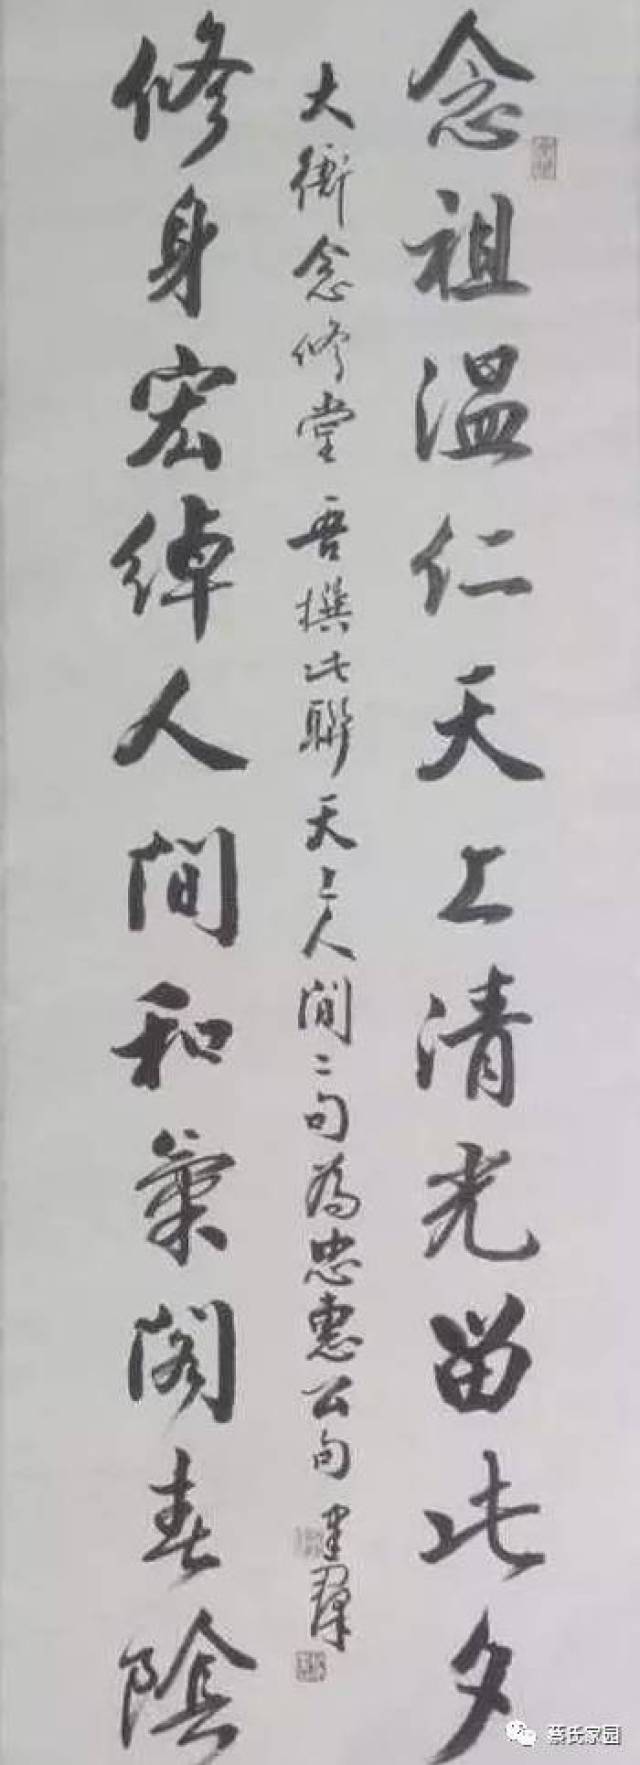 念祖温仁天上清光留此夕
大衡念修堂 吾撰此聯天上人間二句為忠惠公句
修身宏綽人間和氣閣春陰
蔡氏家园